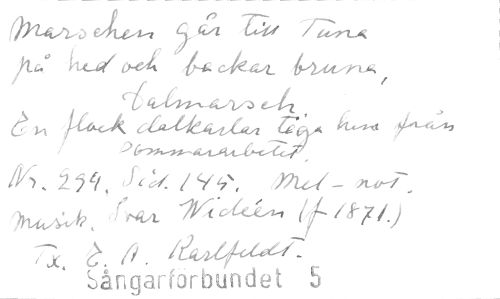 Marschen går till Tuna
på hed och backar bruna,
Dalmarsch
En flock dalkarlar tåga hem från
sommararbetet.
Nr. 294. Sid. 145. Mel-not.
Musik. Ivar Widéen (f 1871.)
Tx. E. A. Karlfeldt.
Sångarförbundet 5